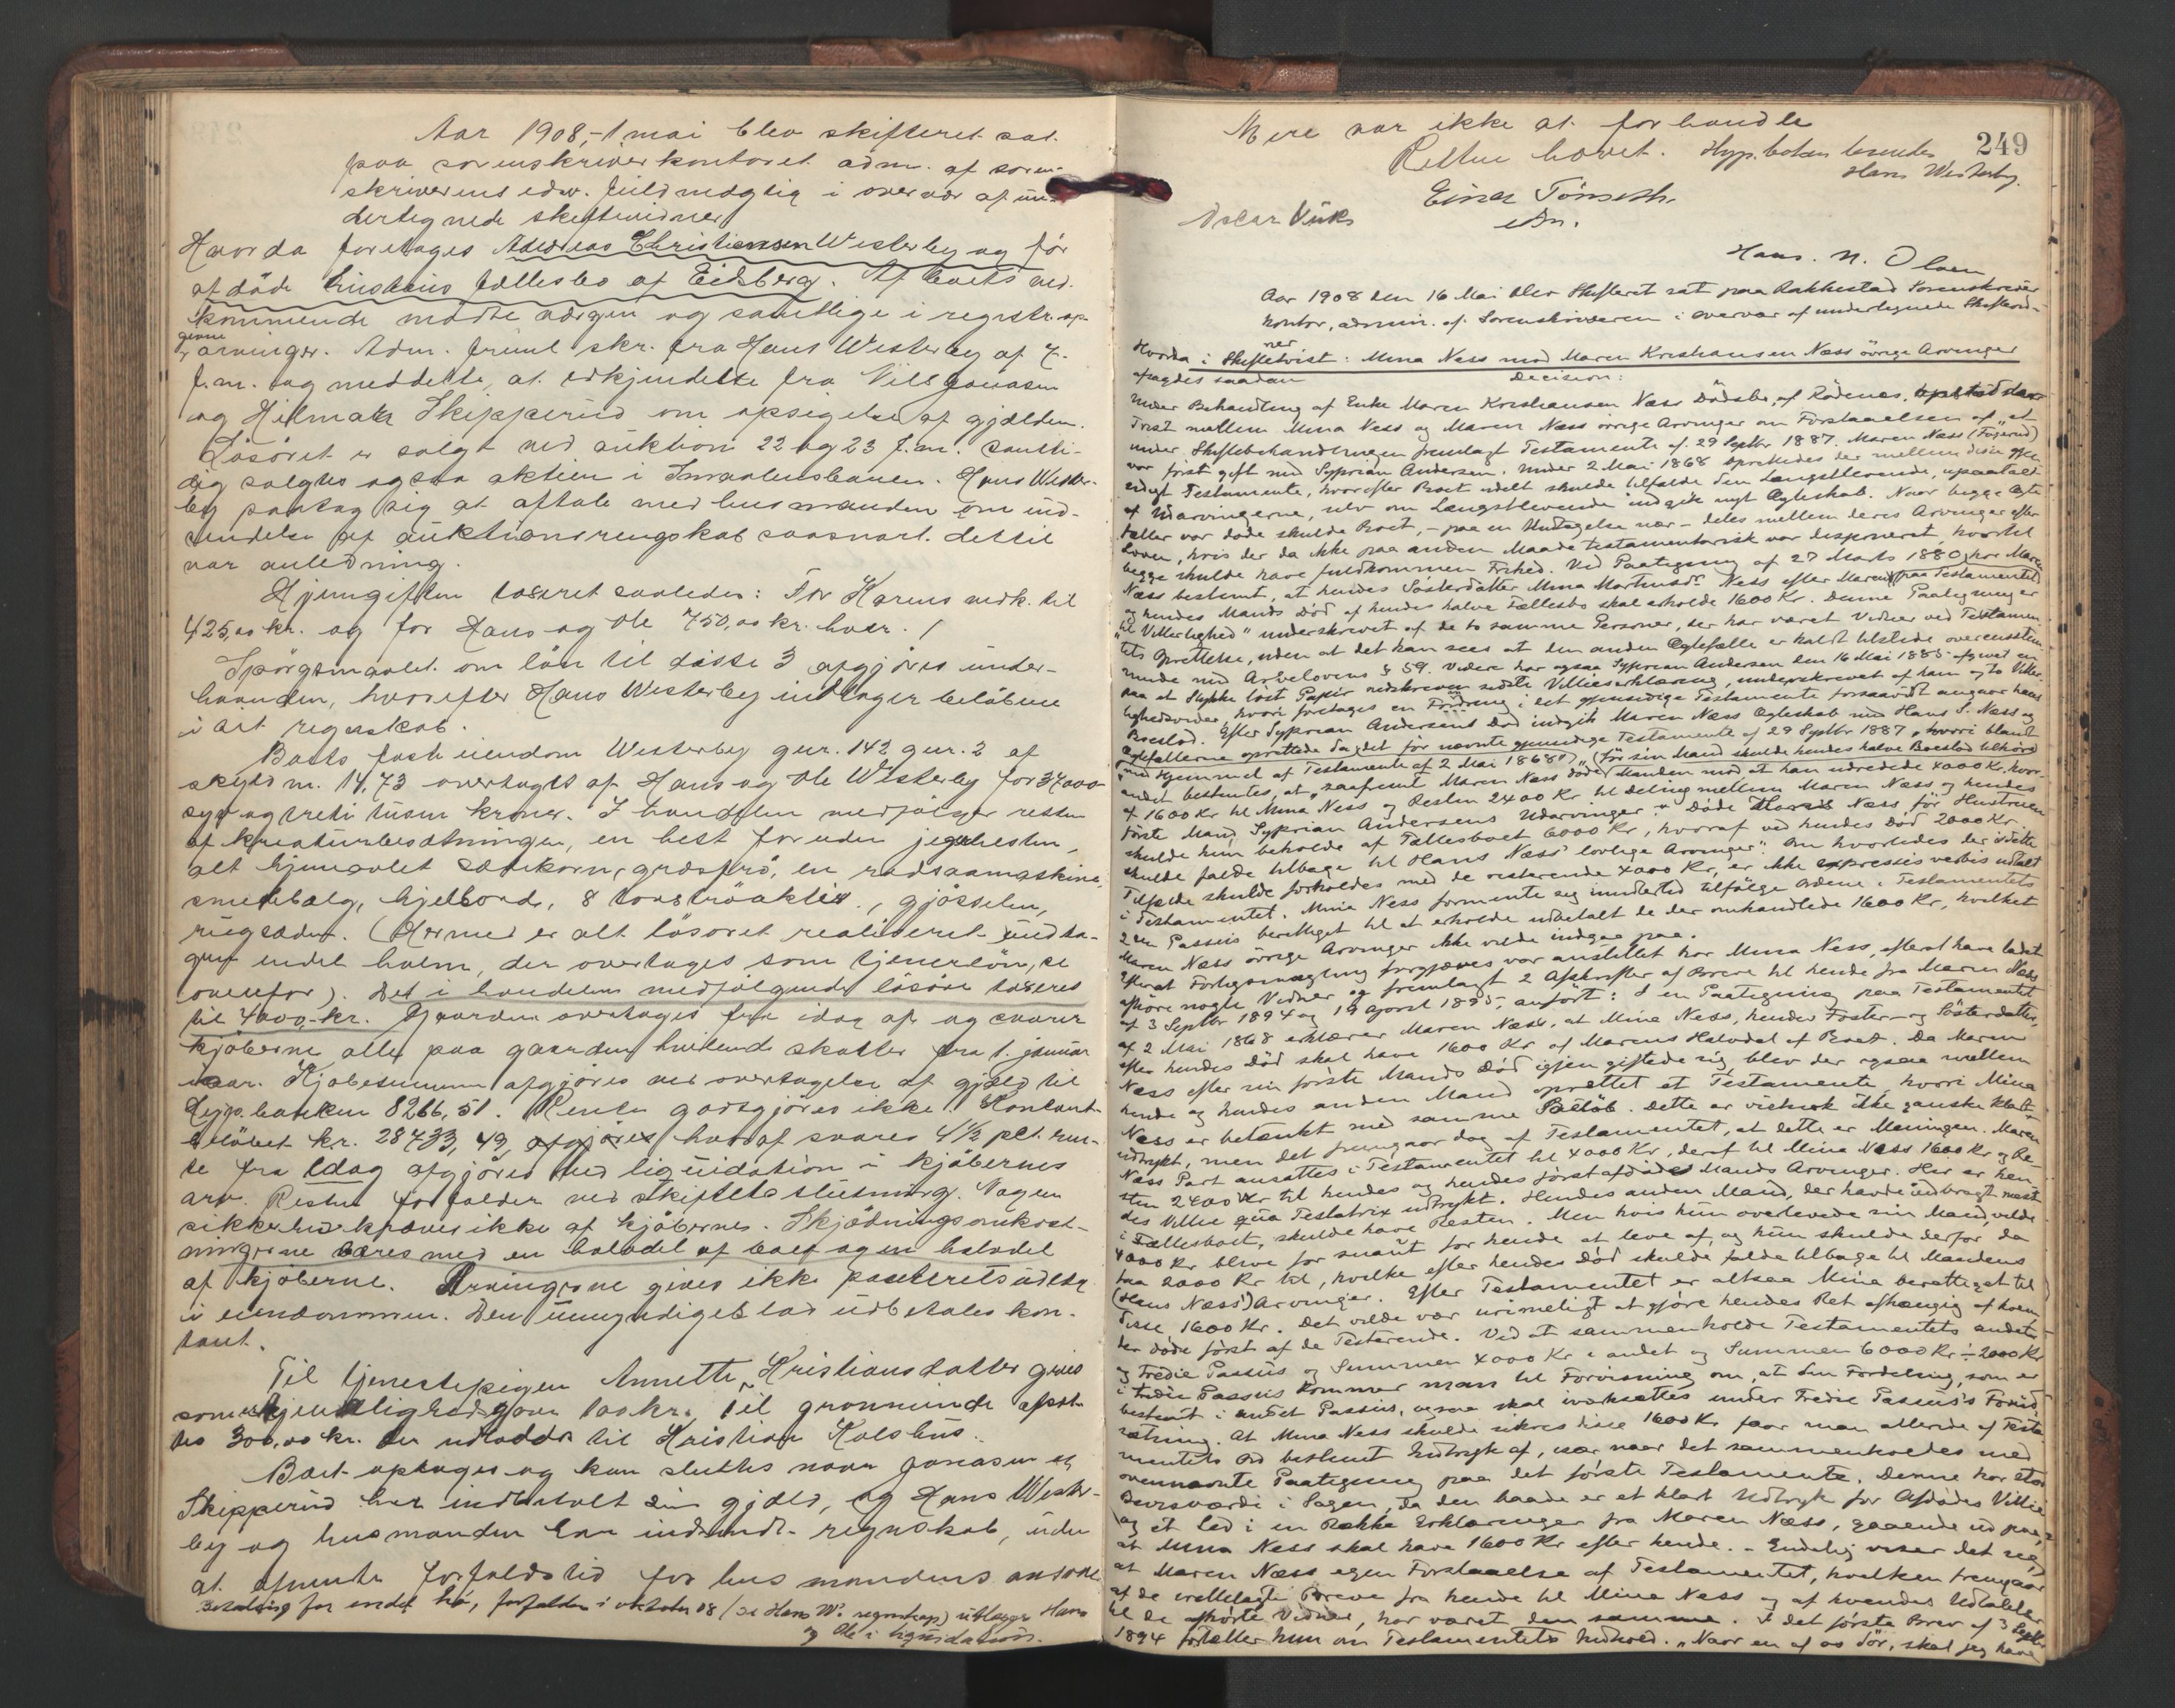 Aar 1908, 1 mai blev skifteret sat
paa sorenskriverkontoret adm. af soren-
skriverens edsv. fuldmægtig i overvær af un-
dertegnede skiftevidner
Hvorda foretages Andreas Christiansen Westerby og før
afdøde hustrus fællesbo af Eidsberg. Af boets ved-
kommende mødte værgen og samtlige i registr. op-
givne
arvinger. Adm. freml. skr. fra Hans Westerby af 7.
f.m. og meddelte, at erkjendelse fra Nils Jonasen
og Hilmar Skipperud om opsigelse af gjælden.
Løsøret er solgt ved auktion 22 og 23 f.m. Samti-
dig solgtes ogsaa aktien i Smaalensbanen. Hans Wester-
by paatog sig at aftale med husmanden om ind-
sendelse af auktionsregnskab saasnart dertil
var anledning.
Hjemgiften taxeret saaledes: For Karens vedk. til
425,00 kr. og for Hans og Ole 750,00 kr. hver. /
Spørgsmaalet om løn til disse 3 afgjøres under-
haanden, hvorefter Hans Westerby indtager beløbene
i sit regnskab.
Boets faste eiendom Westerby gnr. 142 bnr. 2 af
skyld m. 14,73 overtages af Hans og Ole Westerby for 37000-
syv og treti tusen kroner. I handelen medfølger resten
af kreaturbesætningen, en hest foruden jegerhesten,
alt hjemavlet sædekorn, græsfrø, en radsaamaskine,
smedebælg, hjelbord, 8 torvstrøaktier, gjødselen,
rugsæden. (Hermed er alt løsøret realiseret undta-
gen endel halm, der overtages som tjenerløn, se
ovenfor). Det i handelen medfølgende løsøre taxeres
til 4000,- kr. Gaarden overtages fra idag af og svarer
kjøberne alle paa gaarden hvilende skatter fra 1. januar
iaar. Kjøbesummen afgjøres ved overtagelse af gjæld til
Hyp.banken 8266,51. Rente godtgjøres ikke. Kontant-
beløbet kr. 28733,49, afgjøres hvoraf svares 4½ pct. ren-
te fra idag afgjøres ved liquidation i kjøbernes
arv. Resten forfalder ved skiftets slutning. Nogen
sikkerhed kræves ikke af kjøberne. Skjødningsomkost-
ningerne bæres med en halvdel af boet og en halvdel
af kjøberne. Arvingerne gives ikke panterets udlæg
i eiendommen. Den umyndiges lod udbetales kon-
tant.
Til tjenestepigen Annette Kristiansdatter gives
som erkjendtlighedsgave 100 kr. Til gravminde afsæt-
tes 300,00 kr. der udlodde til Kristian Kolsbus.
Boet optages og kan sluttes naar Jonasen og
Skipperud har indbetalt sin gjæld, og Hans Wester-
by og husmanden har indsendt regnskab, uden
at afvente forfaldstid for husmandens ansvar.
Betaling for endel hø, forfalden i oktober 08 (se Hans W's regnskap) udlægges Hans
og Ole i liquidation.
Mere var ikke at forhandle
Retten hævet. Hyp.boken læsendes
Hans Westerby.
249
Einar Tønseth.
edsv.
Oscar Viiks
Hans. N. Olsen
Aar 1908 den 16 Mai blev Skifteret sat paa Rakkestad Sorenskriver-
kontor, admin. af Sorenskriveren i overvær af undertegnede Skiftevid-
ner
Hvorda i Skiftetvist: Mina Ness mod Maren Kristiansen Næss øvrige Arvinger
afsagdes saadan Decision:
Under Behandling af Enke Maren Kristiansen Næss Dødsbo, af Rødenes, opstod der
Tvist mellem Mina Ness og Maren Næss øvrige Arvinger om Forstaaelsen af et
under Skiftebehandlingen fremlagt Testamente af 29 Septbr 1887. Maren Næss (Fögerud)
var først gift med Syprian Andersen. Under 2 Mai 1868 oprettedes der mellem disse gjen-
sidigt Testamente, hvorefter Boet udelt skulde tilfalde den Længstlevende, upaatalt
af Udarvingerne, selv om Længstlevende indgik nyt Ægteskab. Naar begge Ægte-
fæller var døde skulde Boet, - paa en Undtagelse nær - deles mellem deres Arvinger efter
Loven, hvis der da ikke paa anden Maade testamentarisk var disponeret, hvortil
begge skulde have fuldkommen Frihed. Ved Paategning af 27 Marts 1880 har Maren
Næss bestemt, at hendes Søsterdatter Mina Martinusdr. Ness efter Maren (paa Testamentet)
og hendes Mands Død af hendes halve Fællesbo skal erholde 1600 Kr. Denne Paategning er
"til Vitterlighed" underskrevet af de to samme Personer, der har været Vidner ved Testamen-
tets Oprettelse, uden at det kan sees at den anden Ægtefælle er kaldt tilstede overensstem-
mende med Arvelovens § 59. Videre har ogsaa Syprian Andersen den 16 Mai 1885 afgivet en
paa et Stykke løst Papir nedskreven sidste Villieserklæring, underskrevet af ham og to Vitter-
lighedsvidner, hvori foretages en Forandring i det gjensidige Testamente forsaavidt angaar hans
Boeslod. Efter Syprian Andersens Død indgik Maren Næss Ægteskab med Hans S. Næss og
Ægtefællerne oprettede da det før nævnte gjensidige Testamente af 29 Septbr 1887, hvori blandt
"med Hjemmel af Testamente af 2 Mai 1868" (før sin Mand skulde hendes halve Boeslod tilhøre
andet bestemtes, at "saafremt Maren Næss døde" Manden mod at han udredede 4000 Kr. hvor-
af 1600 Kr til Mina Ness og Resten 2400 Kr til deling mellem Maren Næss og hendes
første Mand, Syprian Andersens Udarvinger." Døde Hans Næss før Hustruen
skulde hun beholde af Fællesboet 6000 Kr, hvoraf ved hendes Død 2000 Kr
skulde falde tilbage til Hans Næss' lovlige Arvinger." Om hvorledes der i dette
Tilfælde skulde forholdes med de resterende 4000 Kr, er ikke expressis verbis udtalt
i Testamentet. Mina Ness formente sig imidlertid tilfølge Ordene i Testamentets
2den Passus berettiget til at erholde udbetalt de der omhandlede 1600 Kr, hvilket
Maren Næss øvrige Arvinger ikke vilde indgaa paa.
Efterat Forligsmægling forgjæves var anstillet har Mina Ness, efterat have ladet
afhøre nogle Vidner og fremlagt 2 Afskrifter af Breve til hende fra Maren Næss
af 3 Septbr 1894 og 19 April 1895, anført: I en Paategning paa Testamentet
af 2 Mai 1868 erklærer Maren Næss, at Mina Ness, hendes Foster- og Søsterdatter,
efter hendes Død skal have 1600 Kr af Marens Halvdel af Boet. Da Maren
Ness efter sin første Mands Død igjen giftede sig, blev der ogsaa mellem
hende og hendes anden Mand oprettet et Testamente, hvori Mina
Ness er betænkt med samme Beløb. Dette er vistnok ikke ganske klart
udtrykt, men det fremgaar dog af Testamentet, at dette er Meningen. Maren
Næss Part ansættes i Testamentet til 4000 Kr, deraf til Mina Ness 1600 Kr og Re-
sten 2400 Kr til hendes og hendes først afdøde Mands Arvinger. Her er hen-
des Villie qua Testatrix udtrykt. Hendes anden Mand, der havde indbragt mest
i Fællesboet, skulde have Resten. Men hvis hun overlevede sin Mand, vilde
4000 Kr blive for snaut for hende at leve af, og hun skulde derfor da
faa 2000 Kr til, hvilke efter hendes Død skulde falde tilbage til Mandens
(Hans Næss') Arvinger. Efter Testamentet er altsaa Mina berettiget til
disse 1600 Kr. Det vilde vær urimeligt at gjøre hendes Ret afhængig af hvem
der døde først af de Testerende. Ved at sammenholde Testamentets andet
og tredie Passus og Summen 4000 Kr i andet og Summen 6000 Kr ÷ 2000 Kr
i tredie Passus kommer man til Forvisning om, at den Fordeling, som er
bestemt i andet Passus, ogsaa skal iværksættes under tredie Passus's Forud-
sætning. At Mina Ness skulde sikres disse 1600 Kr faar man allerede af Testa-
mentets Ord bestemt Indtryk af, især naar det sammenholdes med
ovennævnte Paategning paa det første Testamente. Denne har stor
Bevisværdi i Sagen, da den baade er et klart Udtryk for Afdødes Villie
og et Led i en Række Erklæringer fra Maren Næss, gaaende ud paa,
at Mina Ness skal have 1600 Kr efter hende. - Endelig viser det sig,
at Maren Næss egen Forstaaelse af Testamentet, hvilken fremgaar
af de fremlagte Breve fra hende til Mina Ness og af hvendes Udtalelser
til de afhørte Vidner, har været den samme. I det første Brev af 3 Septbr
1894 fortæller hun om Testamentets Indhold. "Naar en af os dør, skal jeg have